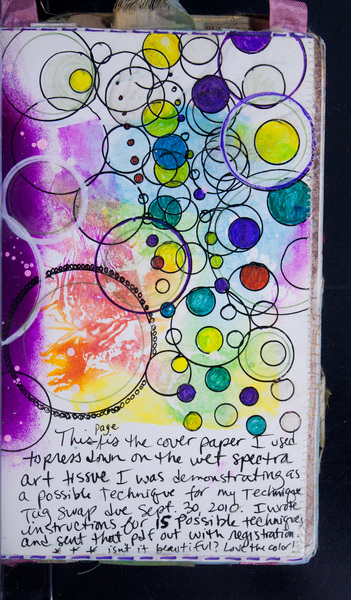 This page is the cover paper I used
to press down on the wet spectra
art tissue I was demonstrating as
a possible technique for my Technique
Tag Swap due Sept. 30, 2010. I wrote
instructions for 15 possible techniques
and sent that pdf out with registration.
* * * isn't it beautiful? Love the color!